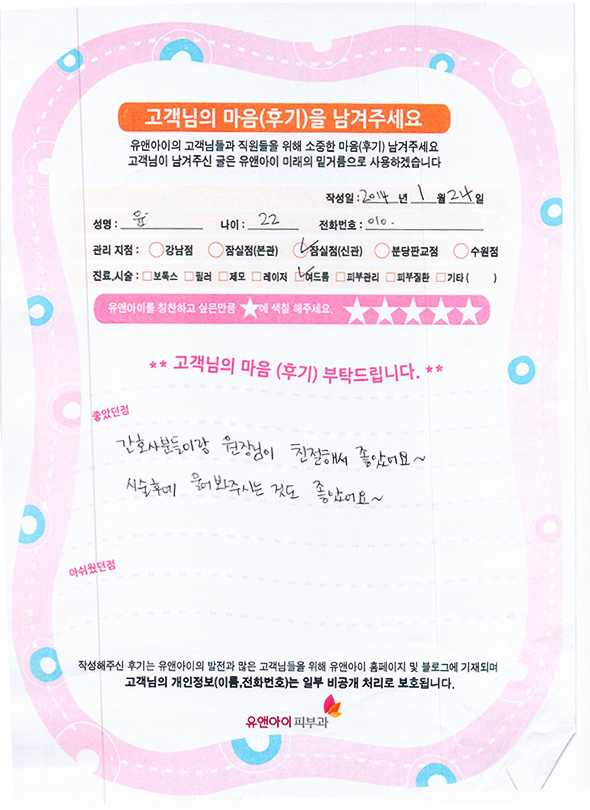 고객님의 마음(후기)을 남겨주세요
유앤아이의 고객님들과 직원들을 위해 소중한 마음(후기) 남겨주세요
고객님이 남겨주신 글은 유앤아이 미래의 밑거름으로 사용하겠습니다
작성일 : 2014 년 1 월 24 일
성명 : 윤 나이 : 22 전화번호 : 010.
관리 지점 : 강남점 잠실점(본관) 잠실점(신관) 분당판교점 수원점
진료,시술 : 보톡스 필러 제모 레이저 여드름 피부관리 피부질환 기타 ( )
유앤아이를 칭찬하고 싶은만큼 ★에 색칠 해주세요. ★★★★★
** 고객님의 마음 (후기) 부탁드립니다. **
좋았던점
간호사분들이랑 원장님이 친절해서 좋았어요~
시술후에 물어봐주시는 것도 좋았어요~
아쉬웠던점
작성해주신 후기는 유앤아이의 발전과 많은 고객님들을 위해 유앤아이 홈페이지 및 블로그에 기재되며
고객님의 개인정보(이름,전화번호)는 일부 비공개 처리로 보호됩니다.
유앤아이 피부과